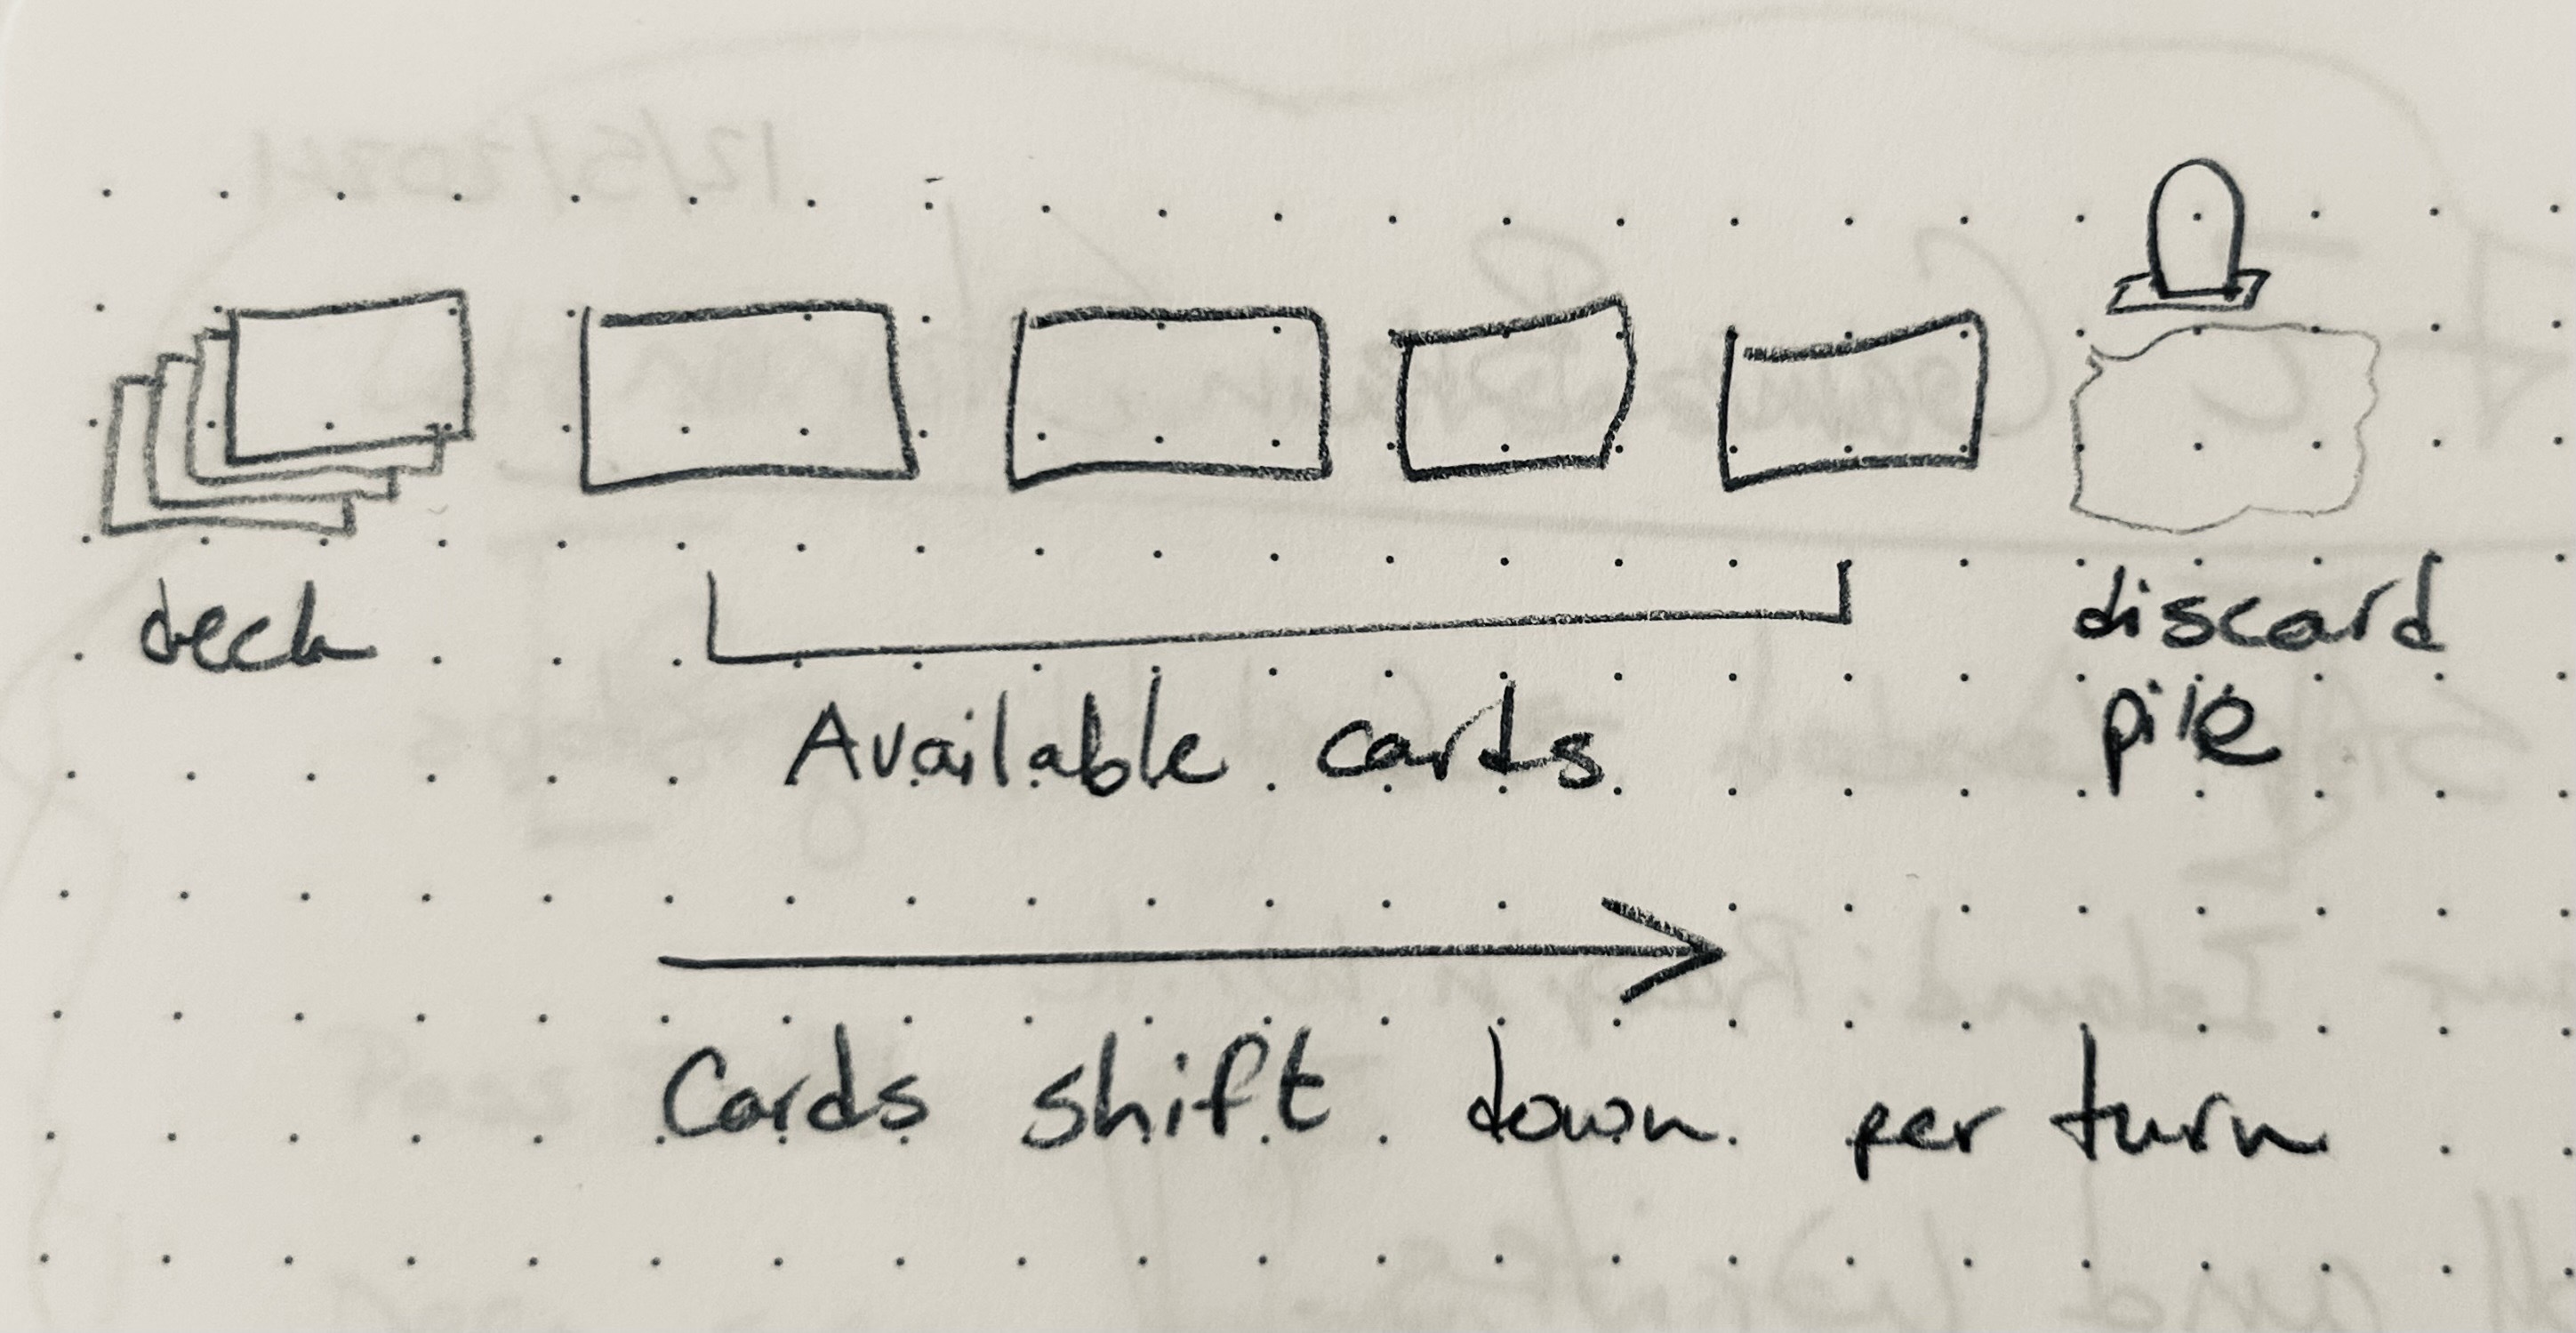 deck
Available cards
discard
pile
Cards shift down per turn
12/5/2024